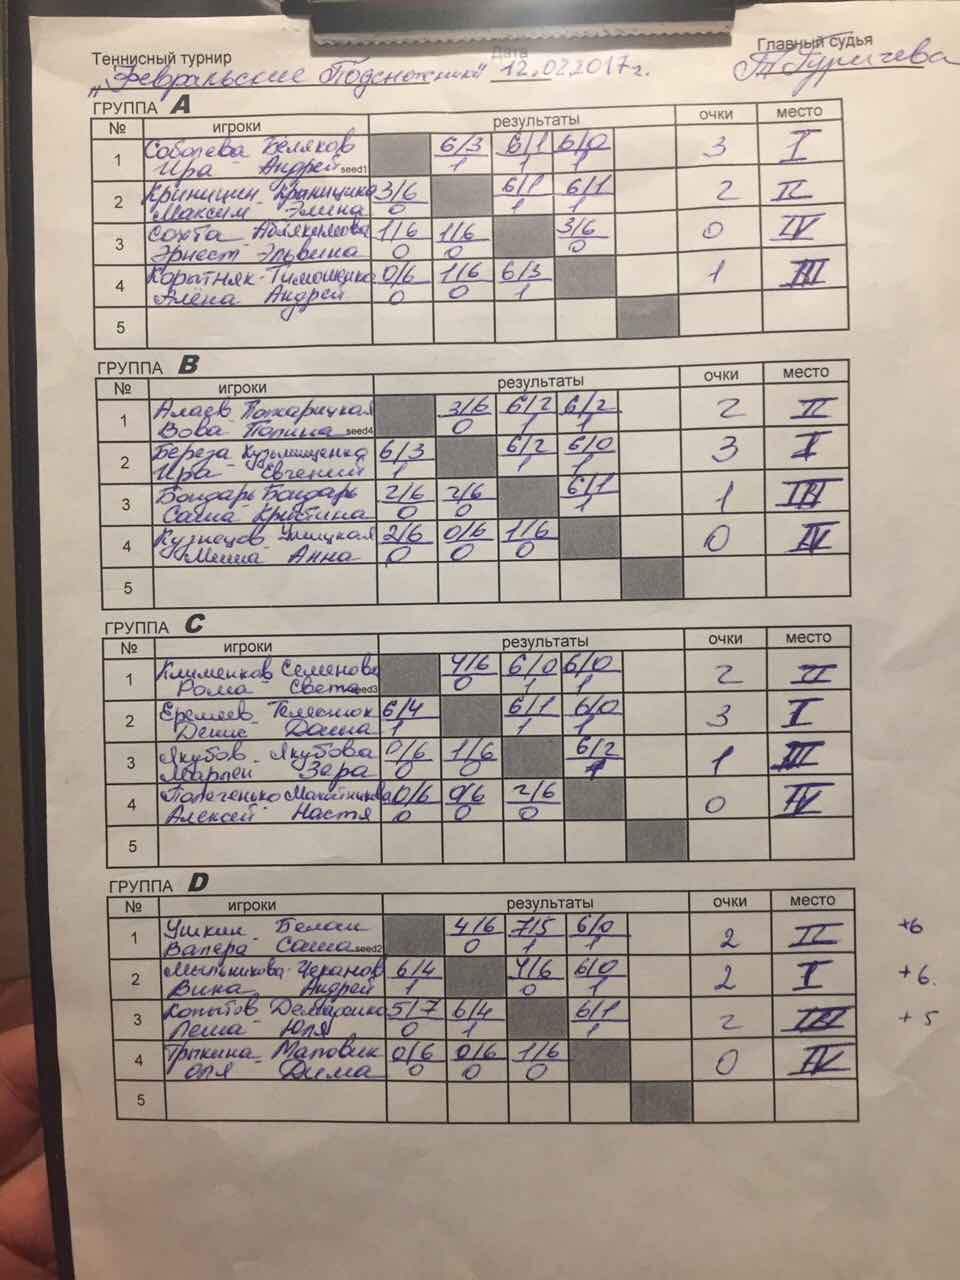 Теннисный турнир Дата Главный судья
"Февральские Подснежники" 12.02.2017г.
ГРУППА A
№ игроки результаты очки место
1 Соболева Беляков 6/3 6/1 6/0 3 I
Ира - Андрей seed1 1 1 1
2 Криницин Криницина 3/6 6/1 6/1 2 II
Максим - Элина 0 1 1
3 Сохта 1/6 1/6 3/6 0 IV
Эрнест Эльвина 0 0 0
4 Коротняк - Тимощенко 0/6 1/6 6/3 1 III
Алёна Андрей 0 0 1
5
ГРУППА B
№ игроки результаты очки место
1 Алаев Пожарицкая 3/6 6/2 6/2 2 II
Вова - Полина seed4 0 1 1
2 Береза Кузьмищенко 6/3 6/2 6/0 3 I
Ира - Евгений 1 1 1
3 Бондарь Бондарь 2/6 2/6 6/1 1 III
Саша - Кристина 0 0 1
4 Кузнецов - 2/6 0/6 1/6 0 IV
Миша - Анна 0 0 0
5
ГРУППА C
№ игроки результаты очки место
1 Клименков Семенова 4/6 6/0 6/0 2 II
Рома Света seed3 0 1 1
2 Еремеев - 6/4 6/1 6/0 3 I
Денис - Даша 1 1 1
3 Якубов - Якубова 0/6 1/6 6/2 1 III
Марлен Зара 0 0 1
4 0/6 0/6 2/6 0 IV
Алексей - Настя 0 0 0
5
ГРУППА D
№ игроки результаты очки место
1 Ушкин - 4/6 7/5 6/0 2 II +6
Валера - Саша seed2 0 1 1
2 Мыльникова - Чеканов 6/4 4/6 6/0 2 I +6.
Вика Андрей 1 0 1
3 Копытов 5/7 6/4 6/1 2 III +5
Леша - Юля 0 1 1
4 - Маловик 0/6 0/6 1/6 0 IV
Оля - Дима 0 0 0
5